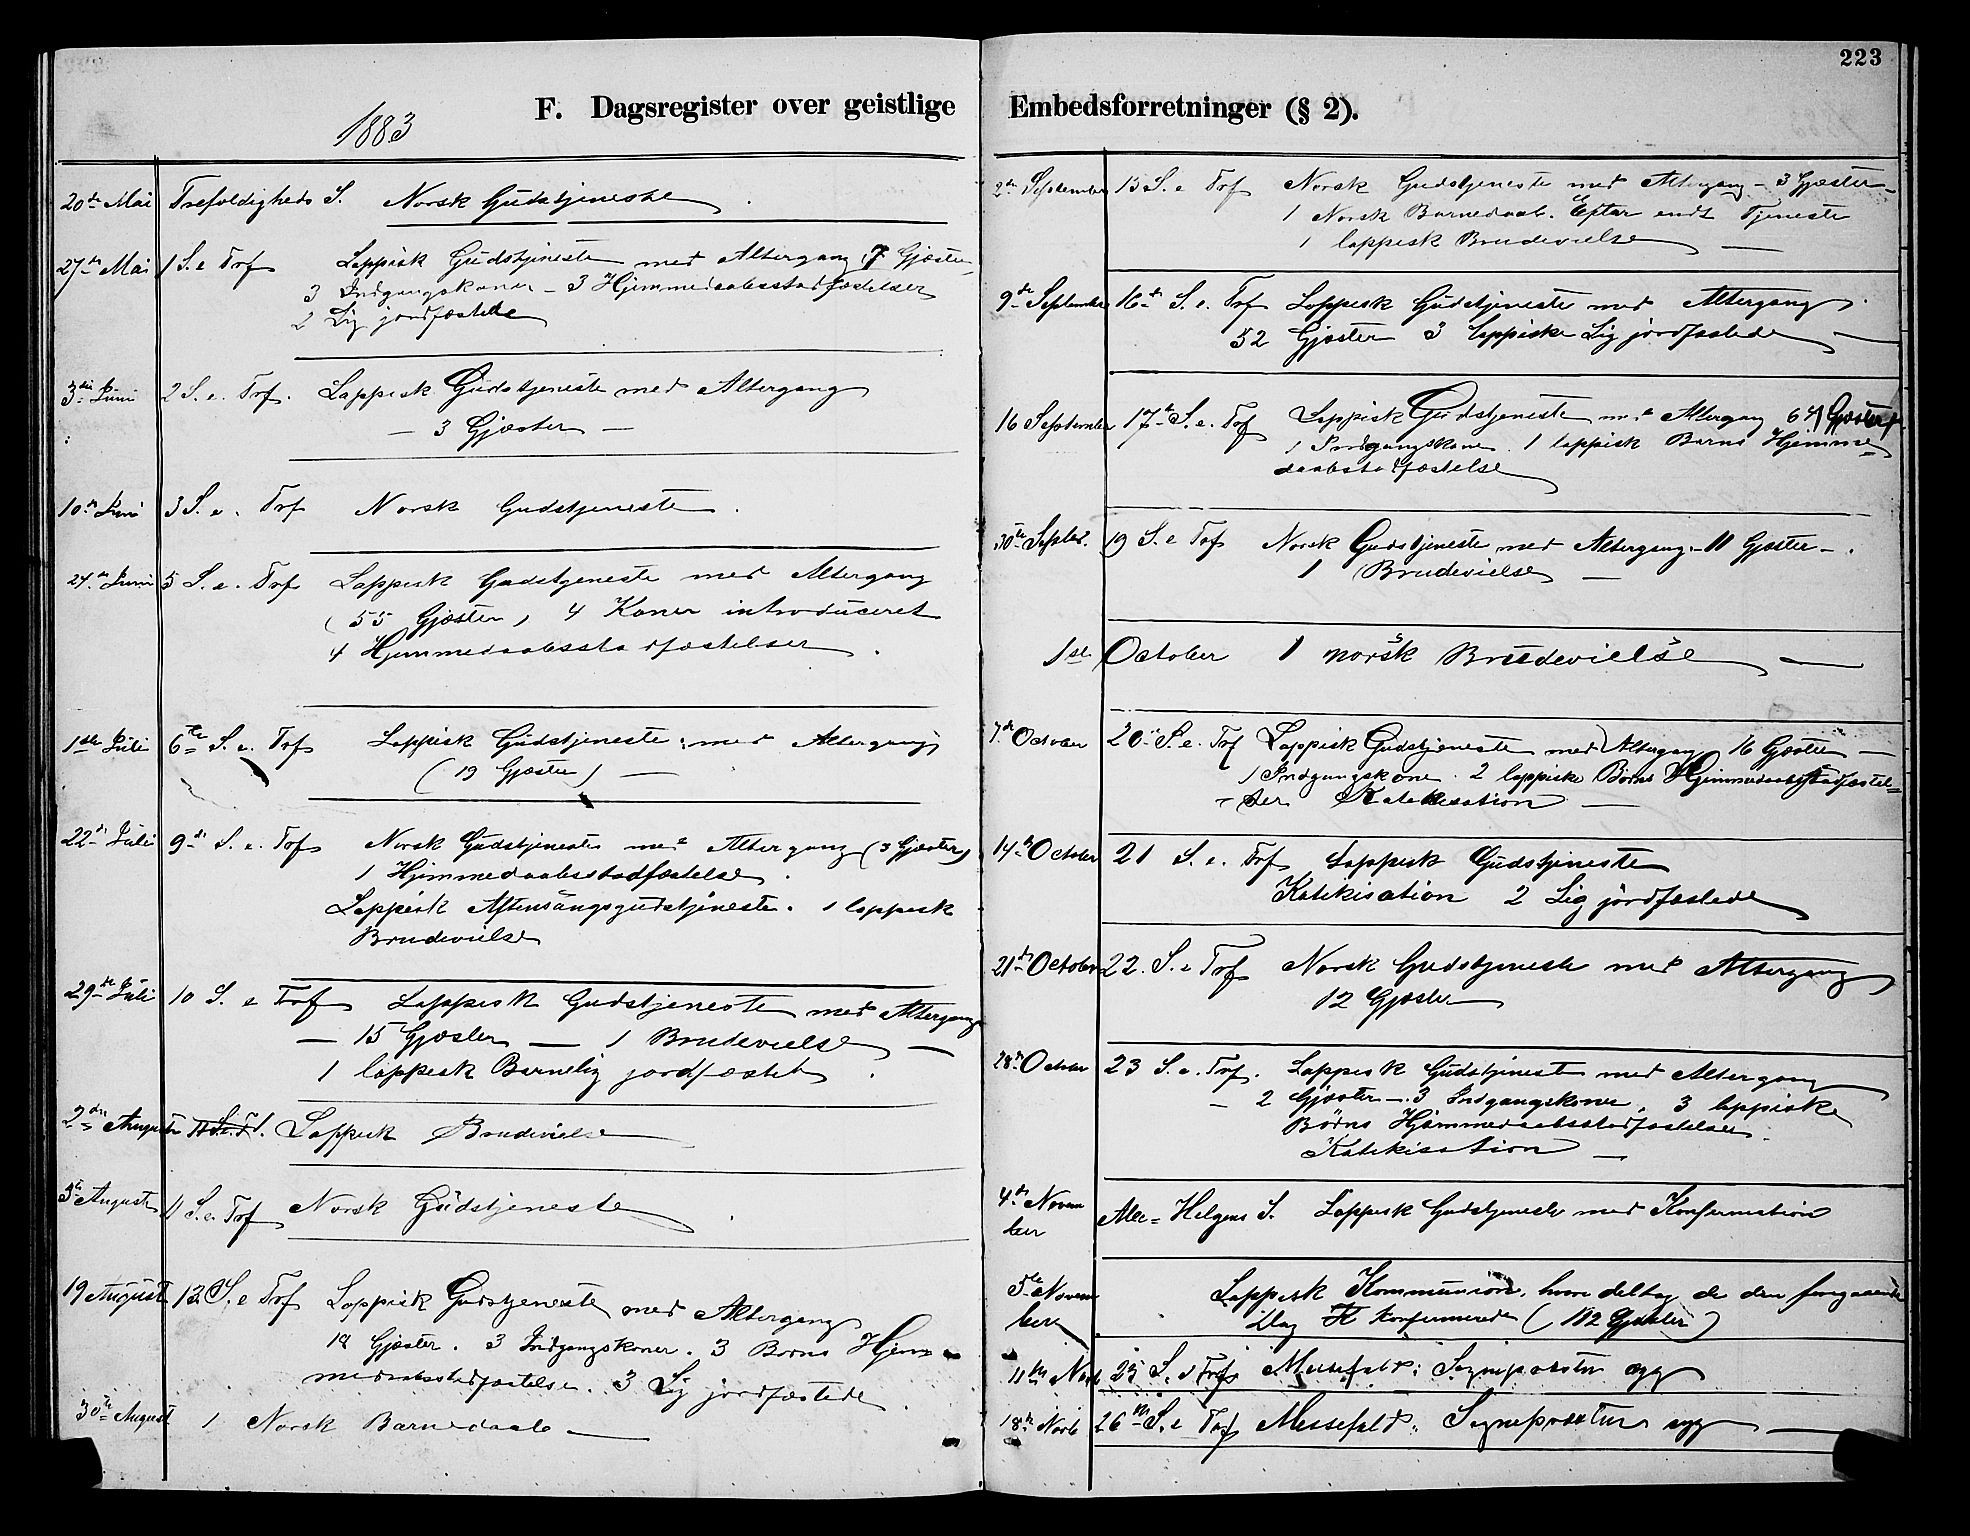 223
F. Dagsregister over geistlige Embedsforretninger (§ 2).
1883
20de Mai Trefoldigheds S. Norsk Gudstjeneste.
27de Mai 1 S. e Trf Lappisk Gudstjeneste med Altergang 7 Gjæster
3 Indgangskoner – 3 Hjemmedaabsstadfæstelser
2 Lig jordfæstede
3die Juni 2 S. e. Trf. Lappisk Gudstjeneste med Altergang
– 3 Gjæster –
10de Juni 3 S. e. Trf Norsk Gudstjeneste.
24de Juni 5 S. e. Trf Lappisk Gudstjeneste med Altergang
(55 Gjæster) 4 Koner introduceret
4 Hjemmedaabsstadfæstelser.
1ste Juli 6te S. e. Trf Lappisk Gudstjeneste med Altergang
(19 Gjæster) –
22de Juli 9de S. e. Trf Norsk Gudstjeneste med Altergang (3 Gjæster)
1 Hjemmedaabsstadfæstelse.
Lappisk Aftensangsgudstjeneste. 1 lappisk
Brudevielse
29de Juli 10 S. e Trf Lappisk Gudstjeneste med Altergang
– 15 Gjæster – 1 Brudevielse –
1 lappisk Barnelig jordfæstet.
2den August Lappisk Brudevielse
5te August 11 S. e. Trf Norsk Gudstjeneste.
19 August 13 S. e Trf Lappisk Gudstjeneste med Altergang
Gjæster. 3 Indgangskoner. 3 Børns Hjem=
medaabsstadfæstelse. 3 Lig jordfæstede.
30te August 1 Norsk Barnedaab –
2den September 15 S. e Trf Norsk Gudstjeneste med Altergang – 3 Gjæster –
1 Norsk Barnedaab. Efter endt Tjeneste
1 lappisk Brudevielse –
9de September 16de S. e. Trf Lappisk Gudstjeneste med Altergang.
52 Gjæster 3 lappiske Lig jordfæstede –
16 September 17de S. e. Trf Lappisk Gudstjeneste med Altergang Gjæster
1 Indgangskone. 1 lappisk Barns Hjemme=
daabsstadfæstelse
30te Septbr. 19 S. e Trf Norsk Gudstjeneste med Altergang – 11 Gjæster –.
1 Brudevielse –
1ste October 1 norsk Brudevielse –
7de October 20de S. e. Trf Lappisk Gudstjeneste med Altergang 16 Gjæster –
1 Indgangskone. 2 lappiske Børns Hjemmedaabsstadfæstel=
ser Katekisation –
14de October 21 S. e. Trf Lappisk Gudstjeneste
Katekisation 2 Lig jordfæstede
21de October 22. S. e Trf Norsk Gudstjeneste med Altergang
12 Gjæster
28de October 23 S. e. Trf. Lappisk Gudstjeneste med Altergang
– 2 Gjæster –. 3 Indgangskoner. 3 lappiske
Børns Hjemmedaabsstadfæstelser.
Katekisation –
4de Novem
ber Alle=Helgens S. Lappisk Gudstjeneste med Konfirmation
5te Novem
ber Lappisk Kommunion, hvori deltog de den foregaaende
Dag Konfirmerede (112 Gjæster)
11te Novb 25 S. e Trf Messefald: Sognepræsten syg
18de Novb 26de S. e Trf Messefald: Sognepræsten syg –